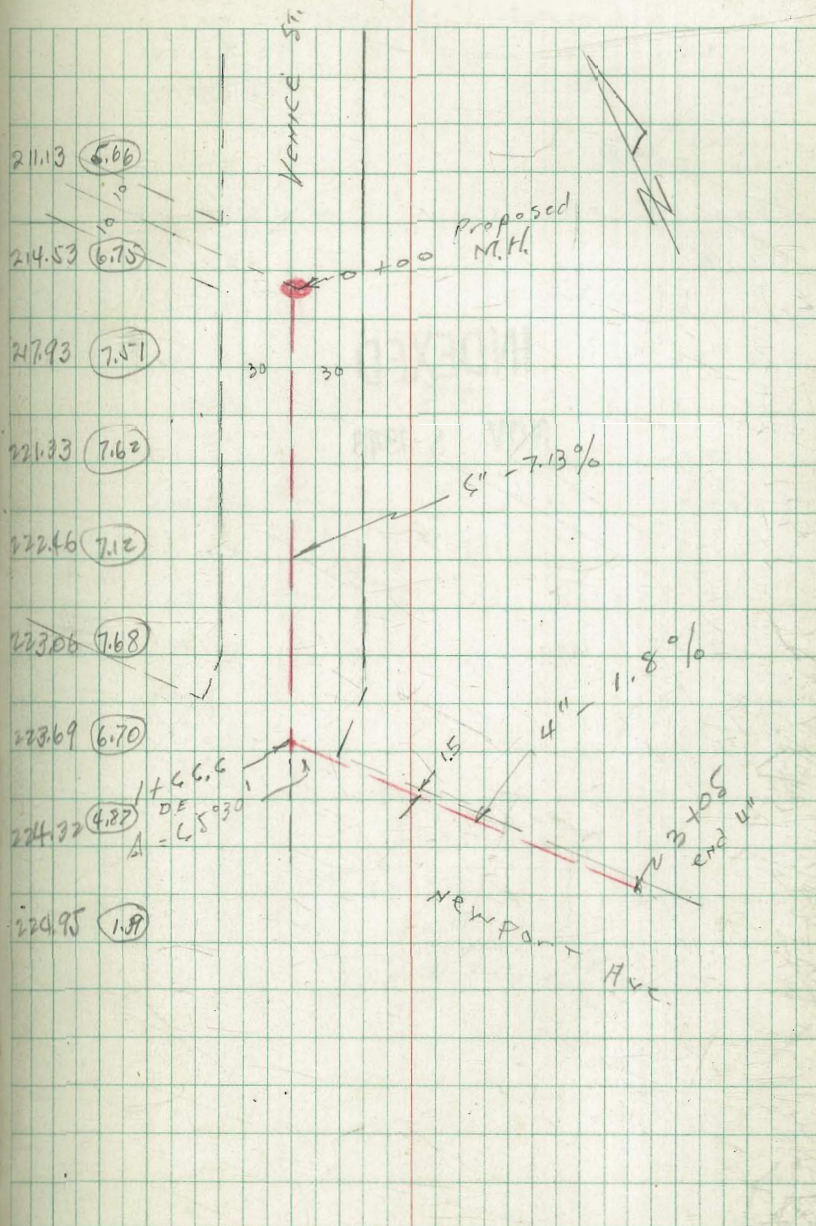 VENICE ST.
211.13 5.66
10
10
214.53 6.75
Proposed
M.H.
0+00
217.93 7.51
30 30
221.33 7.62
6" - 7.13%
222.46 7.12
223.06 7.68
4" - 1.8%
223.69 6.70
1.5
1+66.6
DE
Δ = 65°30'
224.32 4.87
3+05
end 4"
224.95 1.39
Newport Ave.